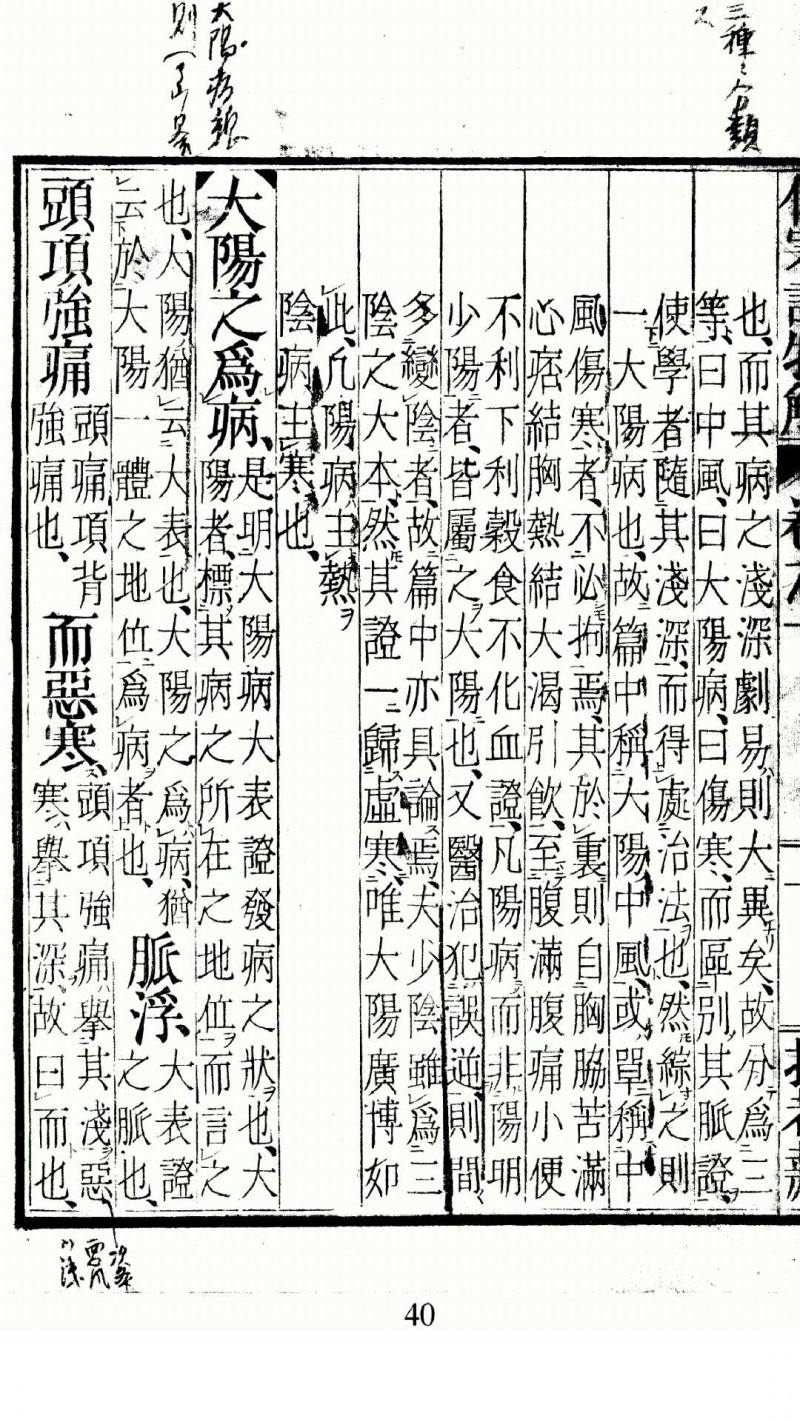 三種之分類
ス
也、而其病之淺深劇易則大異矣、故分爲三
等、曰中風、曰大陽病、曰傷寒、而區別其脈證、
使學者隨其淺深、而得處治法也、然綜之則
一大陽病也、故篇中稱大陽中風、或單稱中
風傷寒者、不必拘焉、其於裏則自胸脇苦滿
心痞結胸熱結大渴引飲、至腹滿腹痛小便
不利下利穀食不化血證、凡陽病而非陽明
少陽者、皆屬之大陽也、又醫治犯誤逆、則間
多變陰者、故篇中亦具論焉、夫少陰雖爲三
陰之大本、然其證一歸虛寒、唯大陽廣博如
此、凡陽病主熱
陰病主寒也、
大陽之爲病、
是明大陽病大表證發病之狀也、大
陽者、標其病之所在之地位而言之
也、大陽猶云大表也、大陽之爲病、猶
云於大陽一體之地位爲病者也、
脈浮、
大表證
之脈也、
頭項強痛
頭痛項背
強痛也、
而惡寒、
頭項強痛擧其淺惡
寒擧其深故曰而也、
40